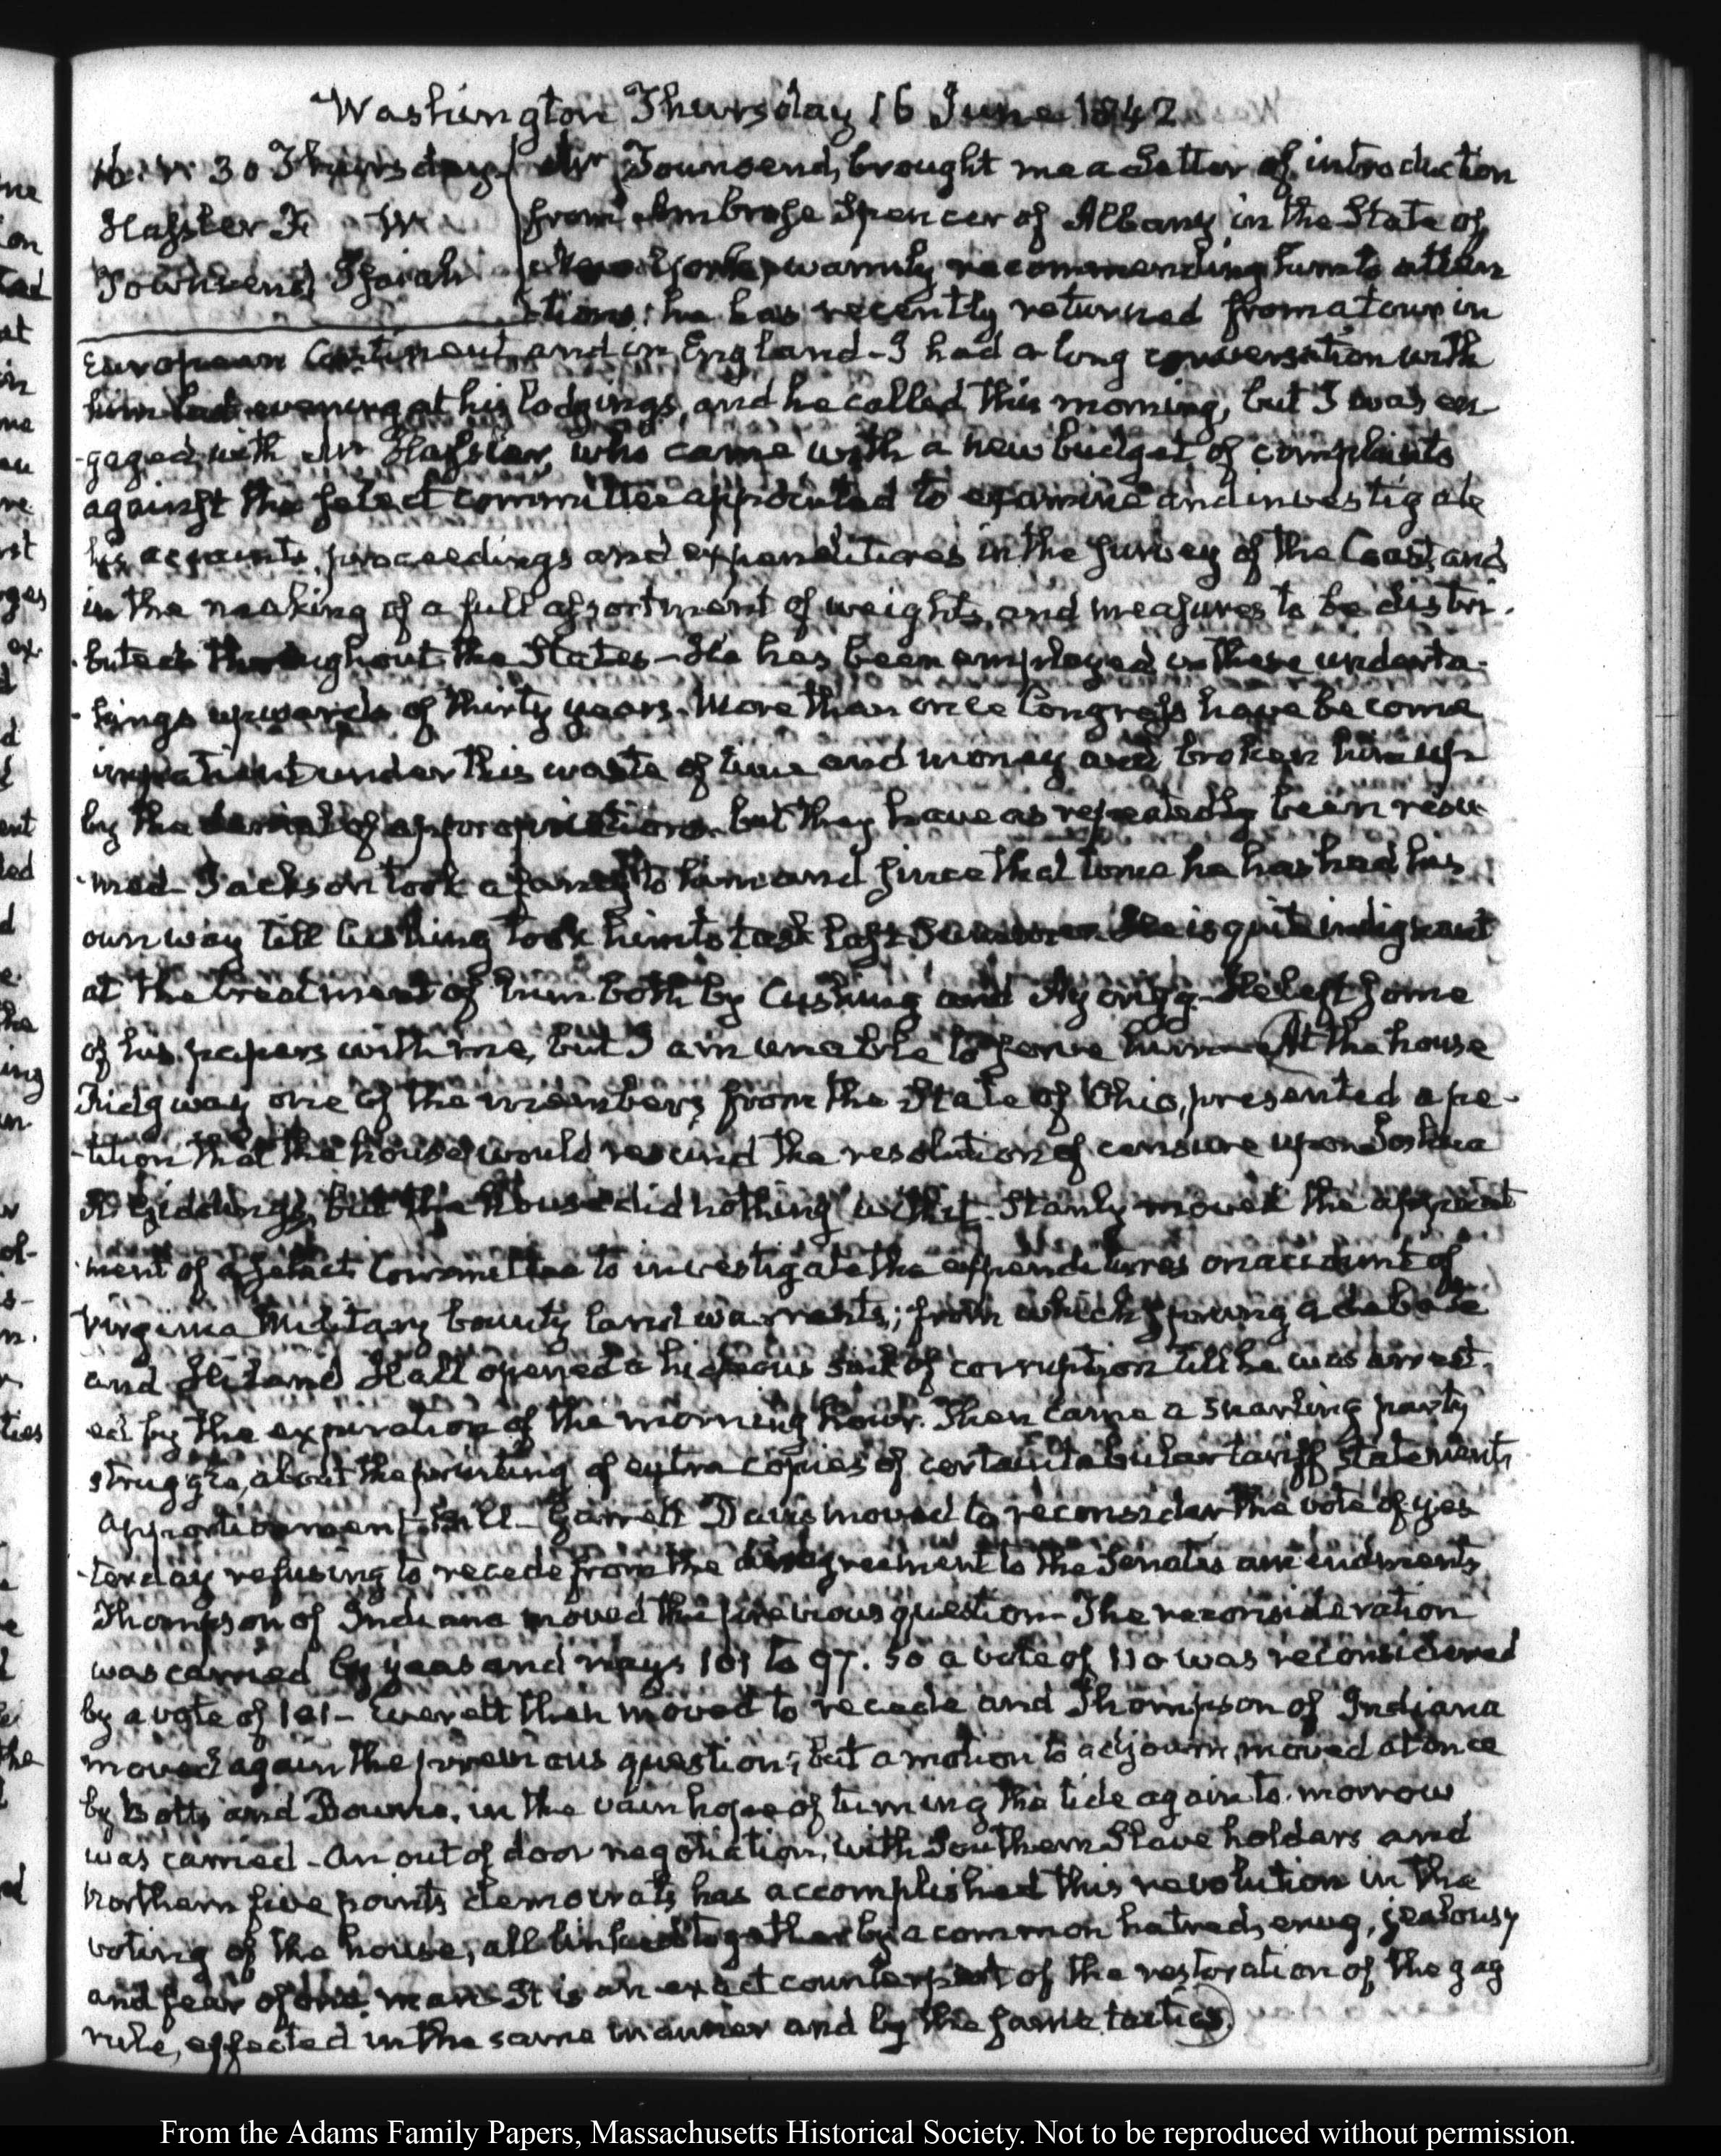 Washington Thursday 16 June 1842
IV. 30 Thursday
Hassler F. 
Townsend Isaiah
Mr Townsend, brought me a Letter of introduction
from Ambrose Spencer of Albany in the State of
New York, warmly recommending him to atten
-tions; he has recently returned from a tour in
European Continent and in England - I had a long conversation with
him last evening at his lodgings, and he called this morning, but I was en
-gaged with Mr Hassler, who came with a new budget of complaints
against the select committee appointed to examine and investigate
his accounts, proceedings and expenditures in the survey of the Coast, and
in the making of a full assortment of weights, and measures to be distri-
-buted throughout the States - He has been employed in these underta-
-kings upwards of thirty years. More than once Congress have become
impatient under this waste of time and money and broken him up
by the denial of appropriations. but they have as repeatedly been resu
-med - Jackson took a fancy to him and since that time he has had his
own way till Cushing took him to task last Summer. He is quite indignant
at the treatment of him both by Cushing and Aycrigg - He left some
of his papers with me, but I am unable to serve him - At the house
Ridgway one of the members from the State of Ohio, presented a pe-
-tition that the house would rescind the resolution of censure upon Joshua
R. Giddings, but the house did nothing with it. Stanly moved the appoint
-ment of a select Committee to investigate the expenditures on account of
Virginia Military bounty land warrants; from which sprung a debate
and Hiland Hall opened a hideous sink of corruption till he was arrest-
ed by the expiration of the morning hour. Then came a snarling party
struggle, about the printing of extra copies of certain tabular tariff statements
Apportionment Bill - Garrett Davis moved to reconsider the vote of yes
-terday refusing to recede from the disagreement to the Senates amendments
Thompson of Indiana moved the previous question - The reconsideration
was carried by yeas and nays 101 to 97. So a vote of 110 was reconsidered
by a vote of 101 - Everett then moved to recede and Thompson of Indiana
moved again the previous question; but a motion to adjourn, moved at once
by Botts and Bowne, in the vain hope of turning the tide again to-morrow
was carried - An out of door negotiation, with Southern Slave holders and
Northern five points democrats has accomplished this revolution in the
voting of the house, all linked together by a common hatred, envy, jealousy
and fear of one man - It is an exact counterpart of the restoration of the gag
rule, effected in the same manner and by the same tactics.
From the Adams Family Papers, Massachusetts Historical Society. Not to be reproduced without permission.